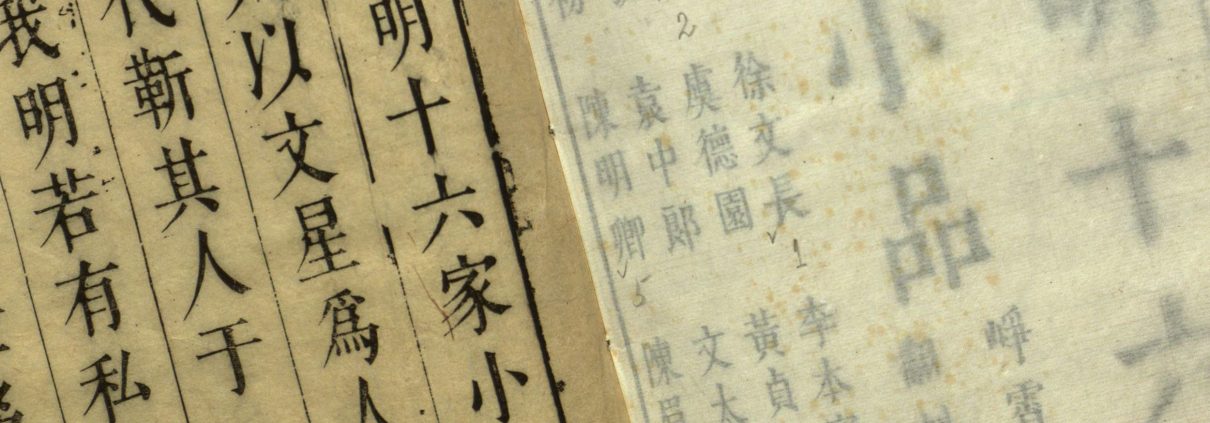 明十六家小
以文星爲人
代蘄其人于
我明若有私
十六
小品
崢霄
徐文長
1
李本
虞德園
黃貞
2
袁中郎
文太
陳明卿
5
陳